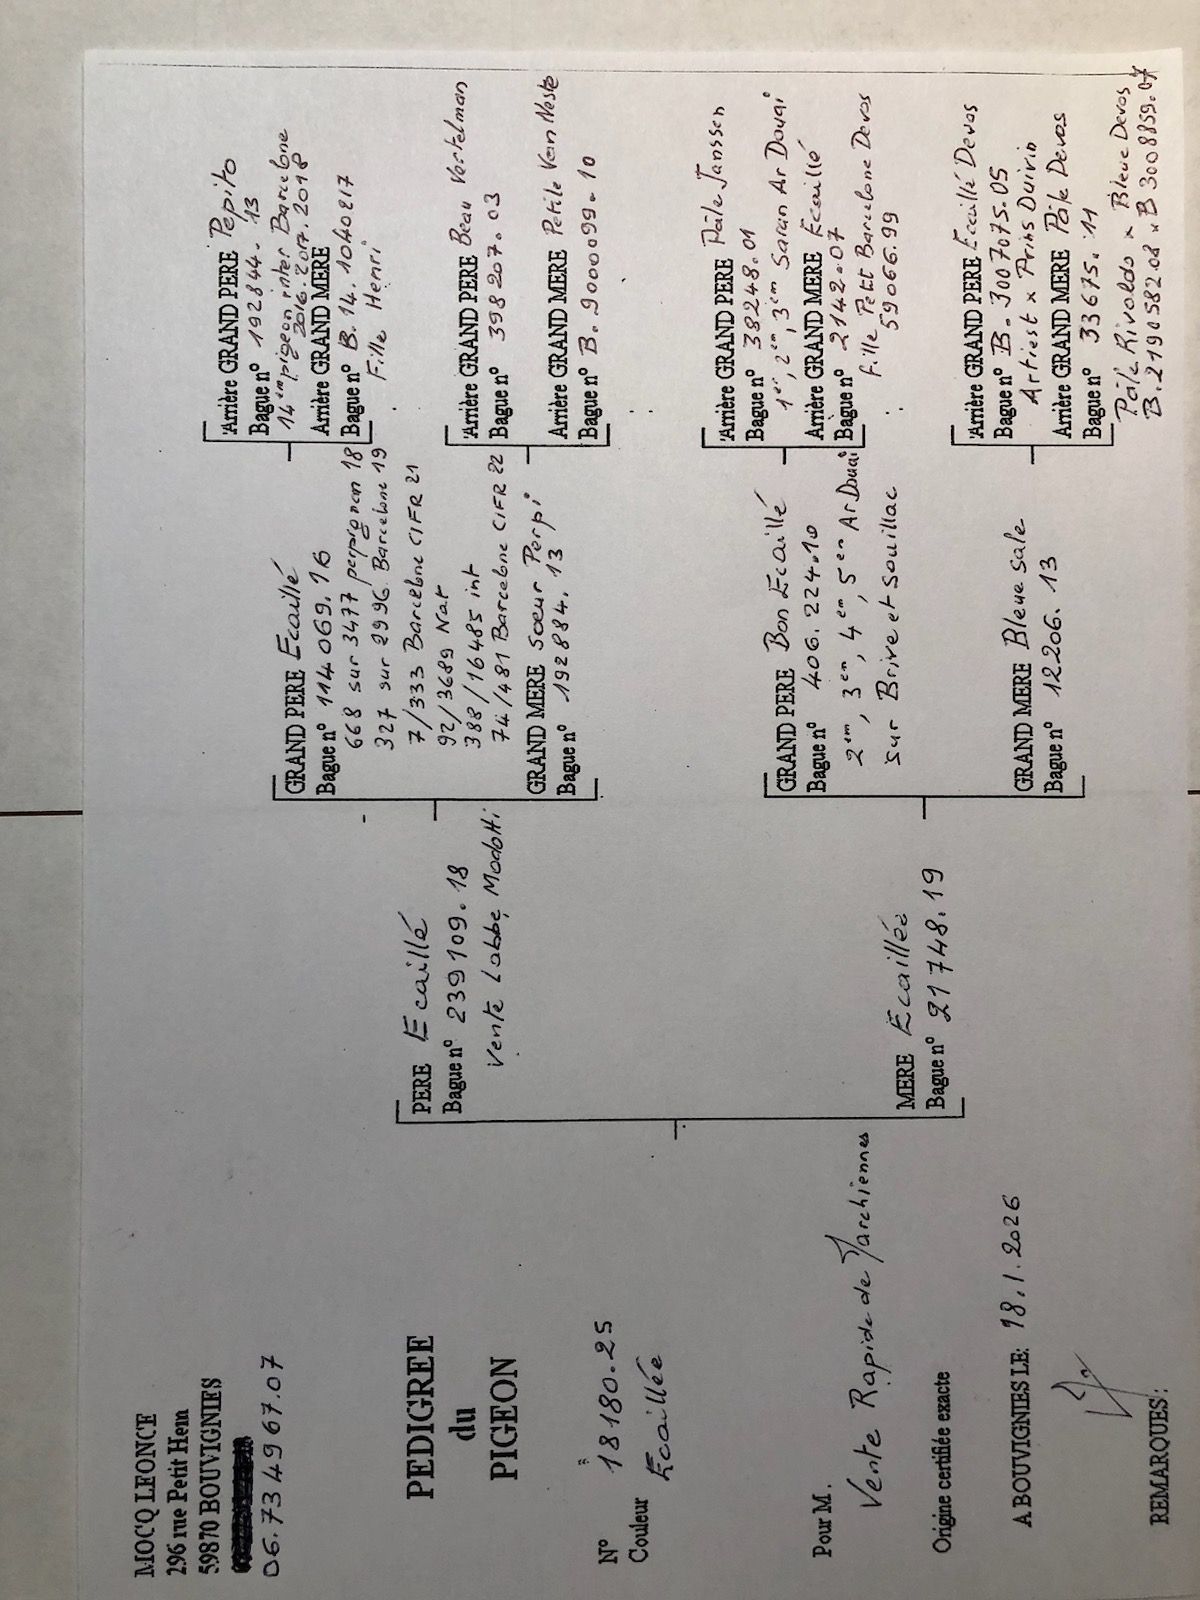 MOCQ LEONCE
296 rue Petit Hem
59870 BOUVIGNIES
06.73 49 67.07
PEDIGREE
du
PIGEON
N° 18180.25
Couleur Ecaillée
Pour M.
Vente Rapide de Marchiennes
Origine certifiée exacte
A BOUVIGNIES LE: 18.1.2026
REMARQUES:
PERE Ecaillé
Bague n° 239109.18
Vente Labbe, Modotti
MERE Ecaillée
Bague n° 21748.19
GRAND PERE Ecaillé
Bague n° 114069.16
668 sur 3477 perpignan 18
327 sur 2996 Barcelone 19
7/333 Barcelone CIFR 21
92/3689 Nat
388/16485 int
74/481 Barcelone CIFR 22
GRAND MERE Soeur Perpi
Bague n° 192884.13
GRAND PERE Bon Ecaillé
Bague n° 406.224.10
2em, 3em, 4em, 5em Ar Douai
sur Brive et Souillac
GRAND MERE Bleue sale
Bague n° 12206.13
Arrière GRAND PERE Pepito
Bague n° 192844.13
14em pigeon inter Barcelone
2016.2017.2018
Arrière GRAND MERE
Bague n° B.14.1040217
Fille Henri
Arrière GRAND PERE Beau Vertelman
Bague n° 398207.03
Arrière GRAND MERE Petite Van Neste
Bague n° B.9000099.10
Arrière GRAND PERE Pâle Janssen
Bague n° 38248.01
1er, 2em, 3em Saran Ar Douai
Arrière GRAND MERE Ecaillé
Bague n° 2142.07
Fille Petit Barcelone Devos
59066.99
Arrière GRAND PERE Ecaillé Devos
Bague n° B.307075.05
Artiest x Prins Duivin
Arrière GRAND MERE Pâle Devos
Bague n° 33675.11
Pâle Rivaldo x Bleue Devos
B.2190582.08 x B.3008859.07